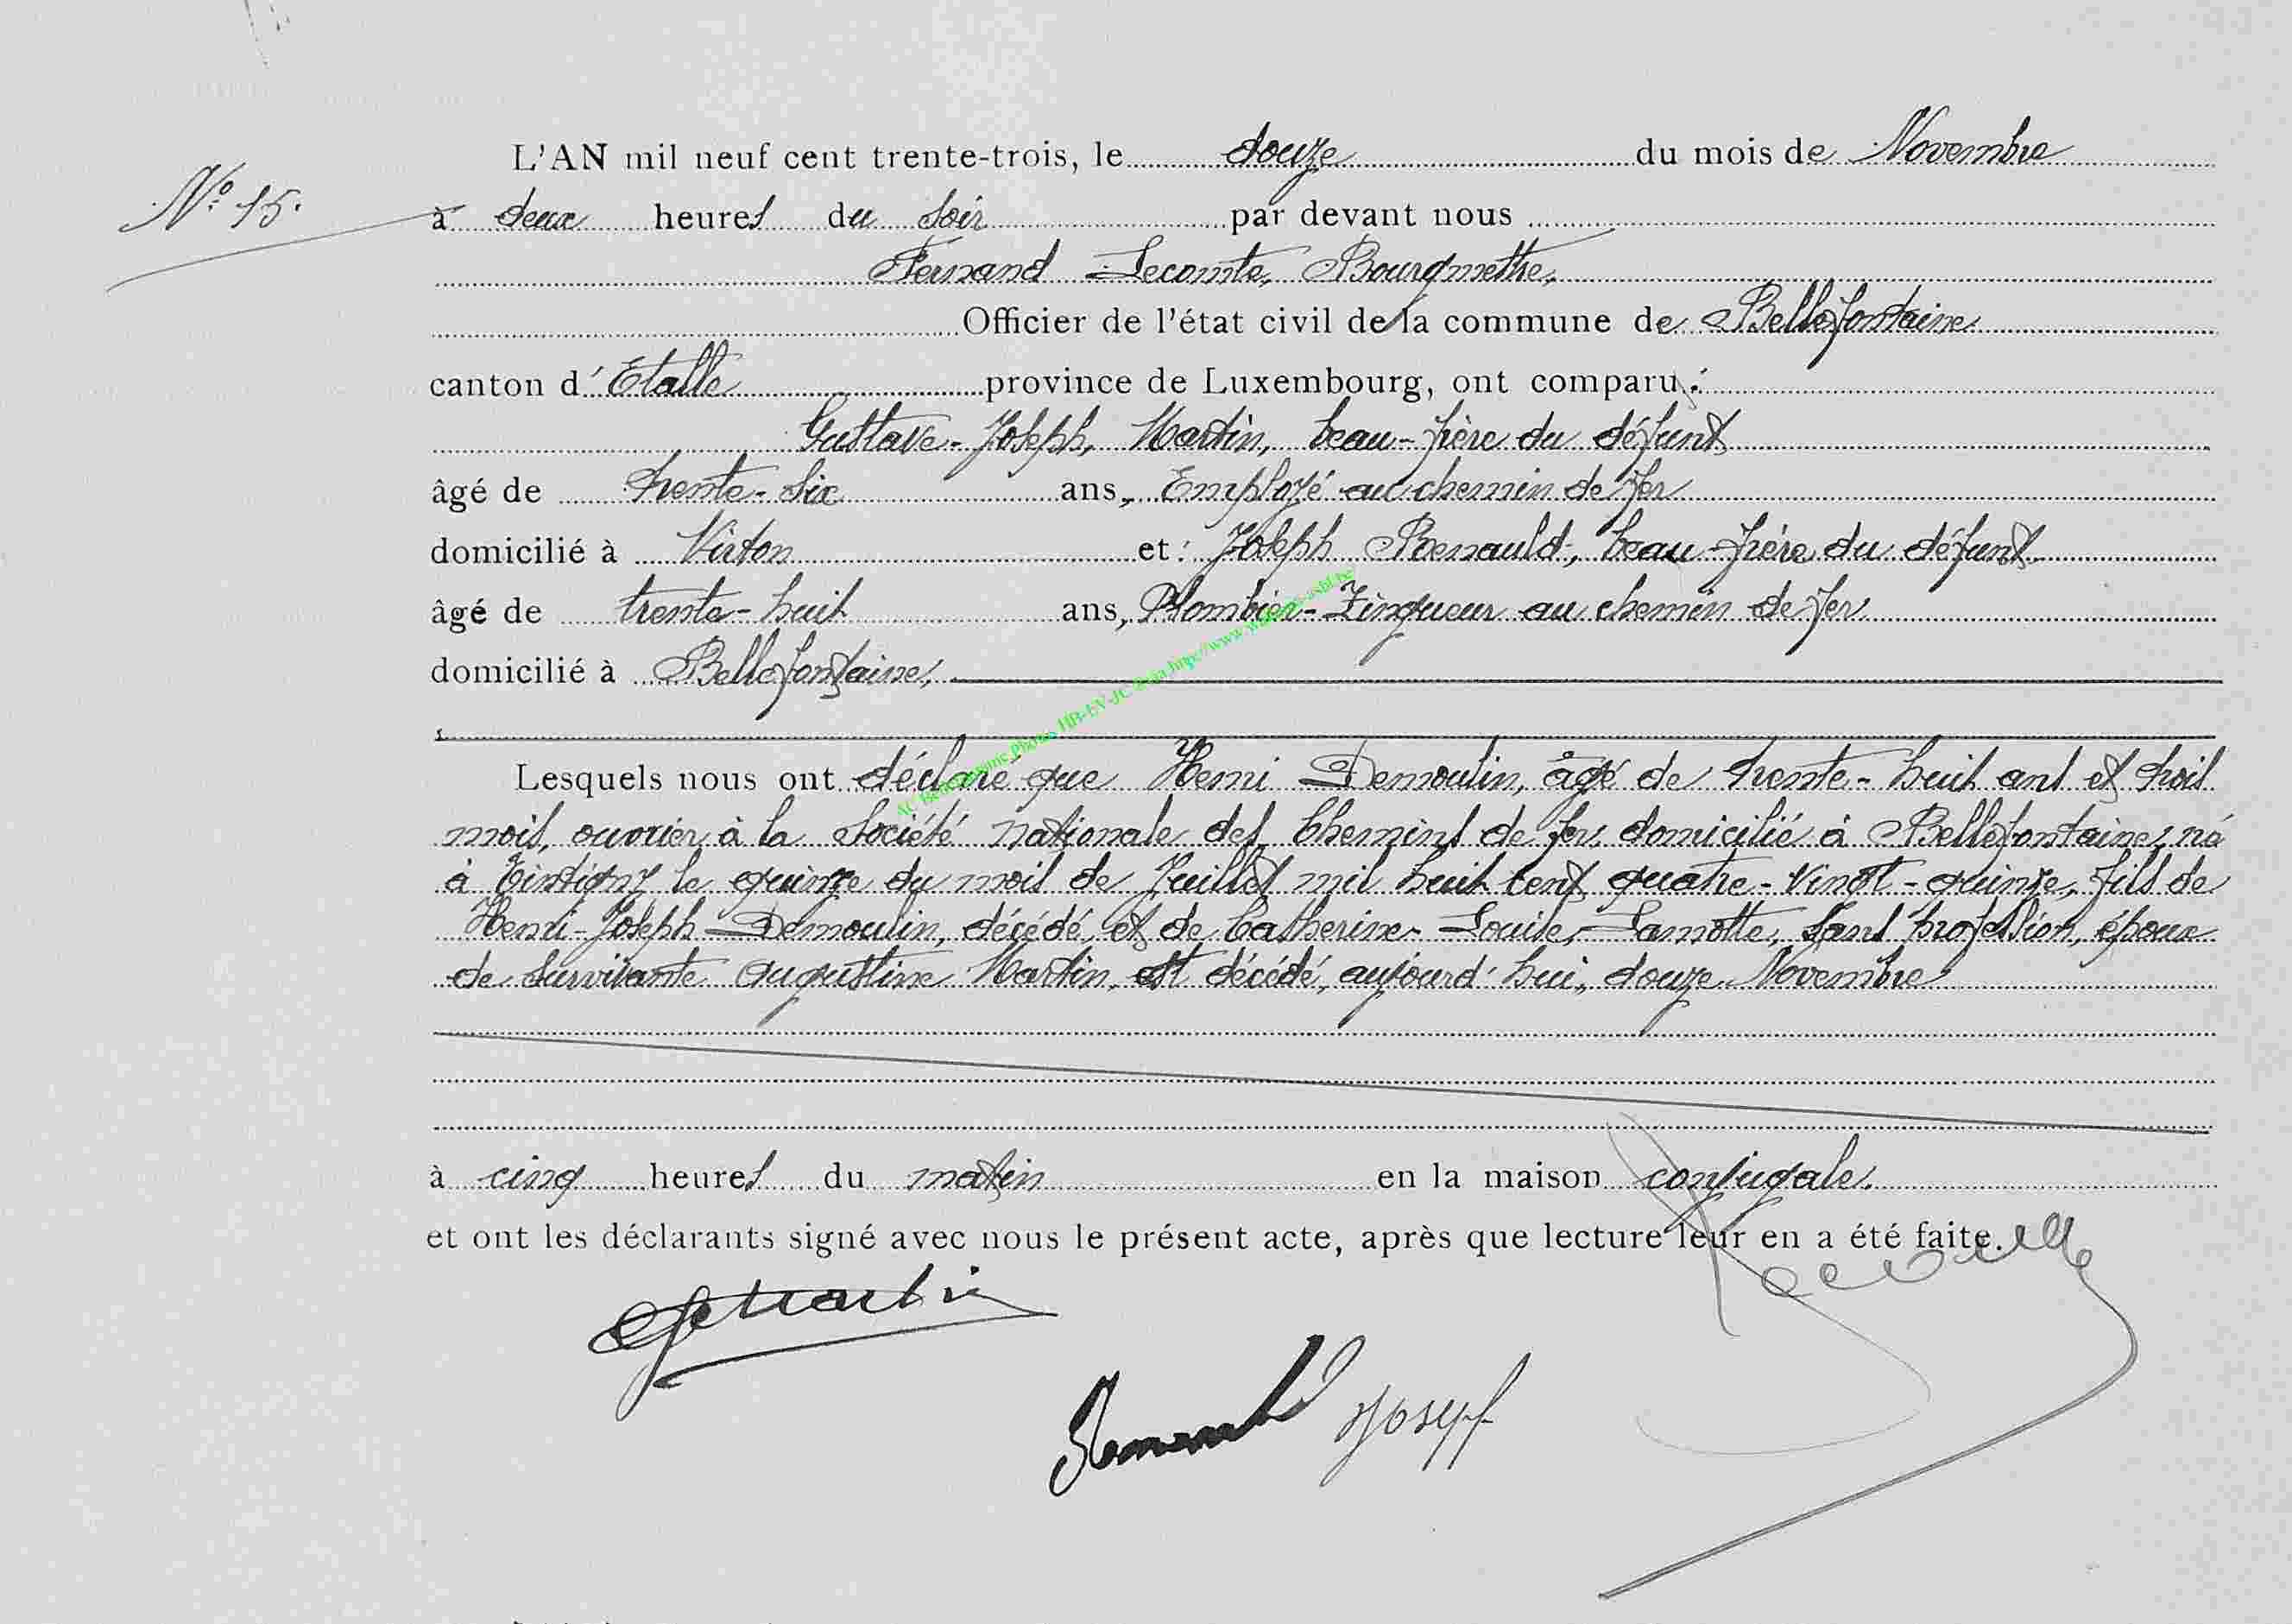 L'AN mil neuf cent trente-trois, le douze du mois de Novembre
N° 15.
à deux heures du soir par devant nous
Fernand Lecomte, Bourgmettre,
Officier de l'état civil de la commune de Bellefontaine
canton d'Etalle province de Luxembourg, ont comparu :
Gustave-Joseph, Martin, beau-frère du défunt
âgé de trente-six ans, Employé au chemin de fer
domicilié à Virton et : Joseph Renauld, beau-frère du défunt
âgé de trente-huit ans, Plombier-Zingueur au chemin de fer
domicilié à Bellefontaine,
Lesquels nous ont déclaré que Henri Demoulin, âgé de trente-huit ans et trois
mois, ouvrier à la Société nationale des Chemins de fer, domicilié à Bellefontaine, né
à Tintigny le quinze du mois de Juillet mil huit cent quatre-vingt-quinze, fils de
Henri-Joseph Demoulin, décédé, et de Catherine-Louise, Lamotte, sans profession, époux
de survivante Augustine Martin, est décédé, aujourd'hui, douze Novembre
à cinq heures du matin en la maison conjugale.
et ont les déclarants signé avec nous le présent acte, après que lecture leur en a été faite.
Martin
Renauld Joseph